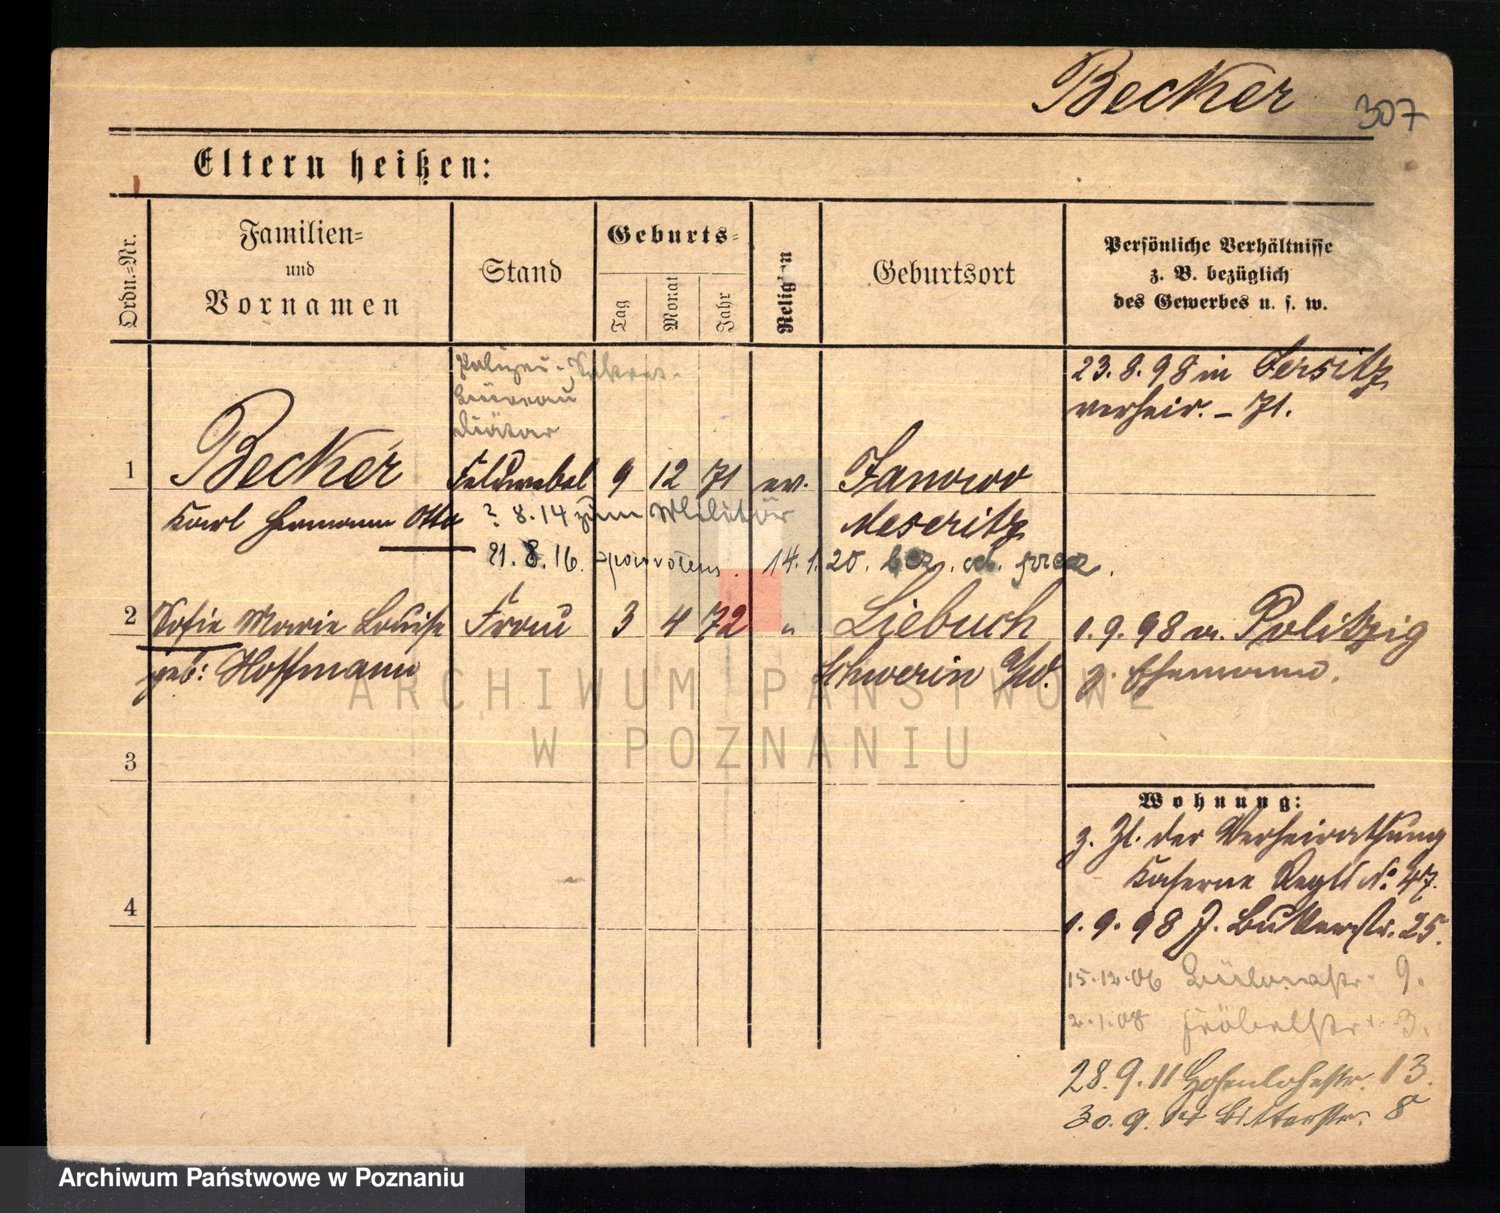 Becker 307
Eltern heißen:
Ordn.=Nr.
Familien=
und
Vornamen
Stand
Geburts=
Tag
Monat
Jahr
Religion
Geburtsort
Persönliche Verhältnisse
z. B. bezüglich
des Gewerbes u. s. w.
Büreau
Diätar
23. 8. 98 in Jersitz
verheir. – 71.
1 Becker Feldwebel 9 12 71 ev. Janowo
Karl Hermann Otto ? 8. 14 zum Militär Meseritz
21. 8. 16. 14. 1. 20.
2 Sofie Marie Louise Frau 3 4 72 " Liebuch 1. 9. 98 a. Politzig
geb: Hoffmann Schwerin a/W. z. Ehemann.
3
4
Wohnung:
z. Zt. der Verheirathung
Kaserne Regts No 47.
1. 9. 98 J. Bukerstr. 25.
15. 12. 06 Bülowstr. 9.
2. 1. 08 Fröbelstr. 3.
28. 9. 11 Hohenlohestr. 13.
30. 9. Bitterstr. 8
ARCHIWUM PAŃSTWOWE
W POZNANIU
Archiwum Państwowe w Poznaniu